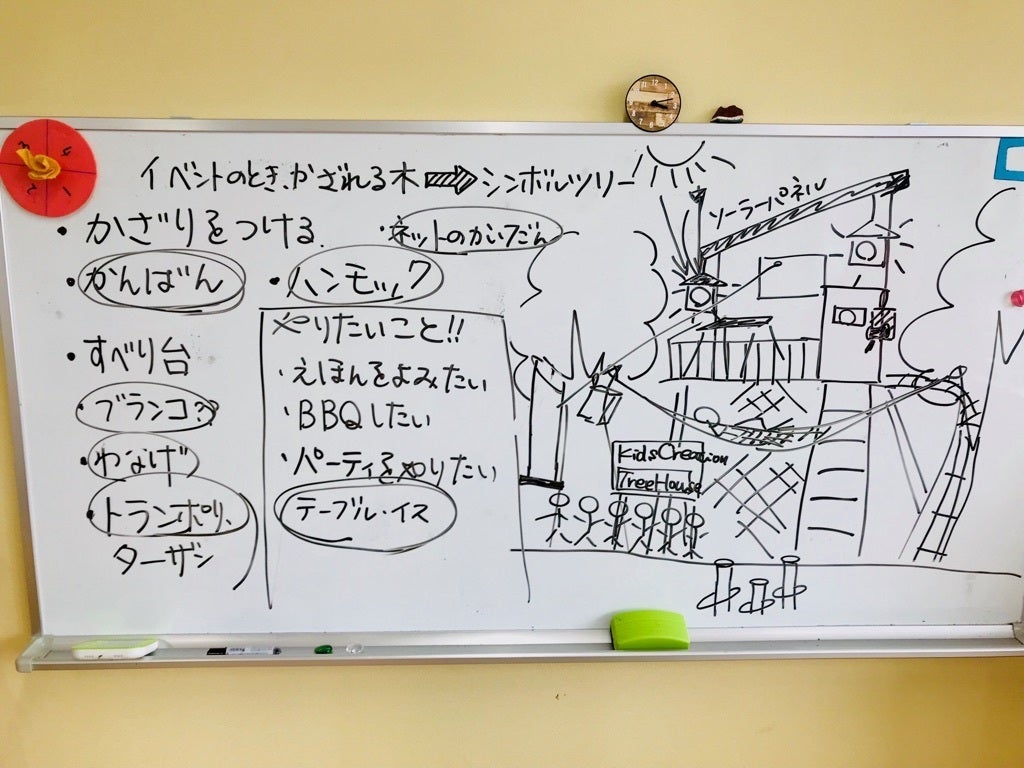 イベントのとき、かざれる木 ⇨ シンボルツリー
・かざりをつける
・ネットのかいだん
・かんばん
・ハンモック
・すべり台
・ブランコ??
・わなげ
・トランポリン
ターザン
やりたいこと!!
・えほんをよみたい
・BBQしたい
・パーティをやりたい
テーブル・イス
ソーラーパネル
Kids Creation
Tree House